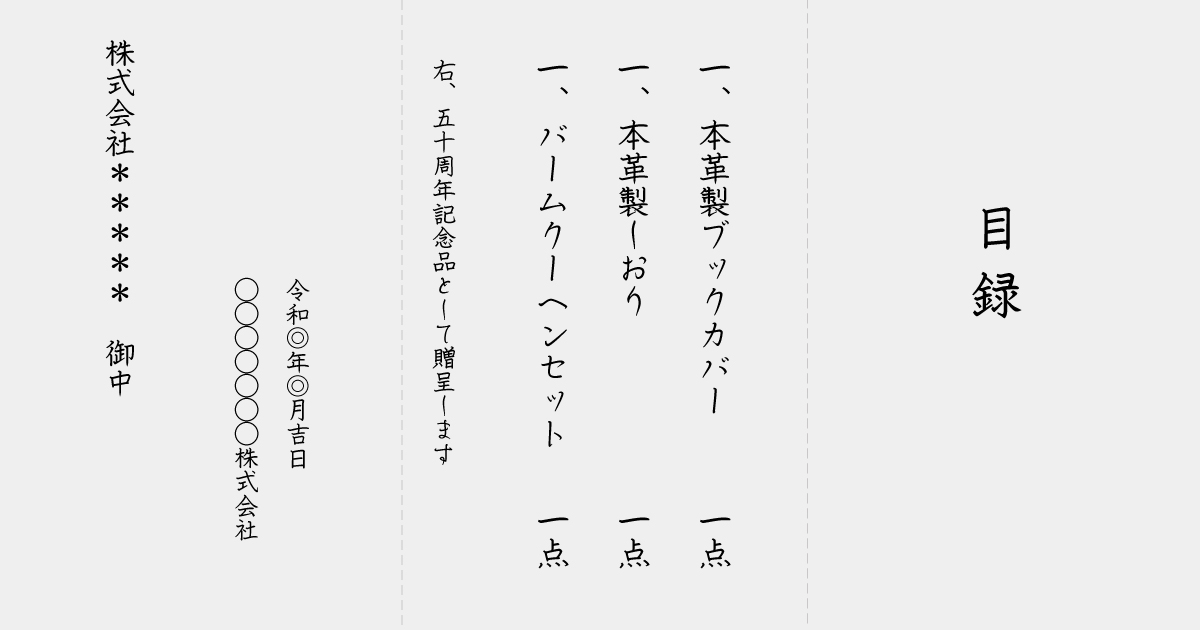 目録
一、本革製ブックカバー　一点
一、本革製しおり　一点
一、バームクーヘンセット　一点
右、五十周年記念品として贈呈します
令和◎年◎月吉日
〇〇〇〇〇〇〇株式会社
株式会社＊＊＊＊＊　御中